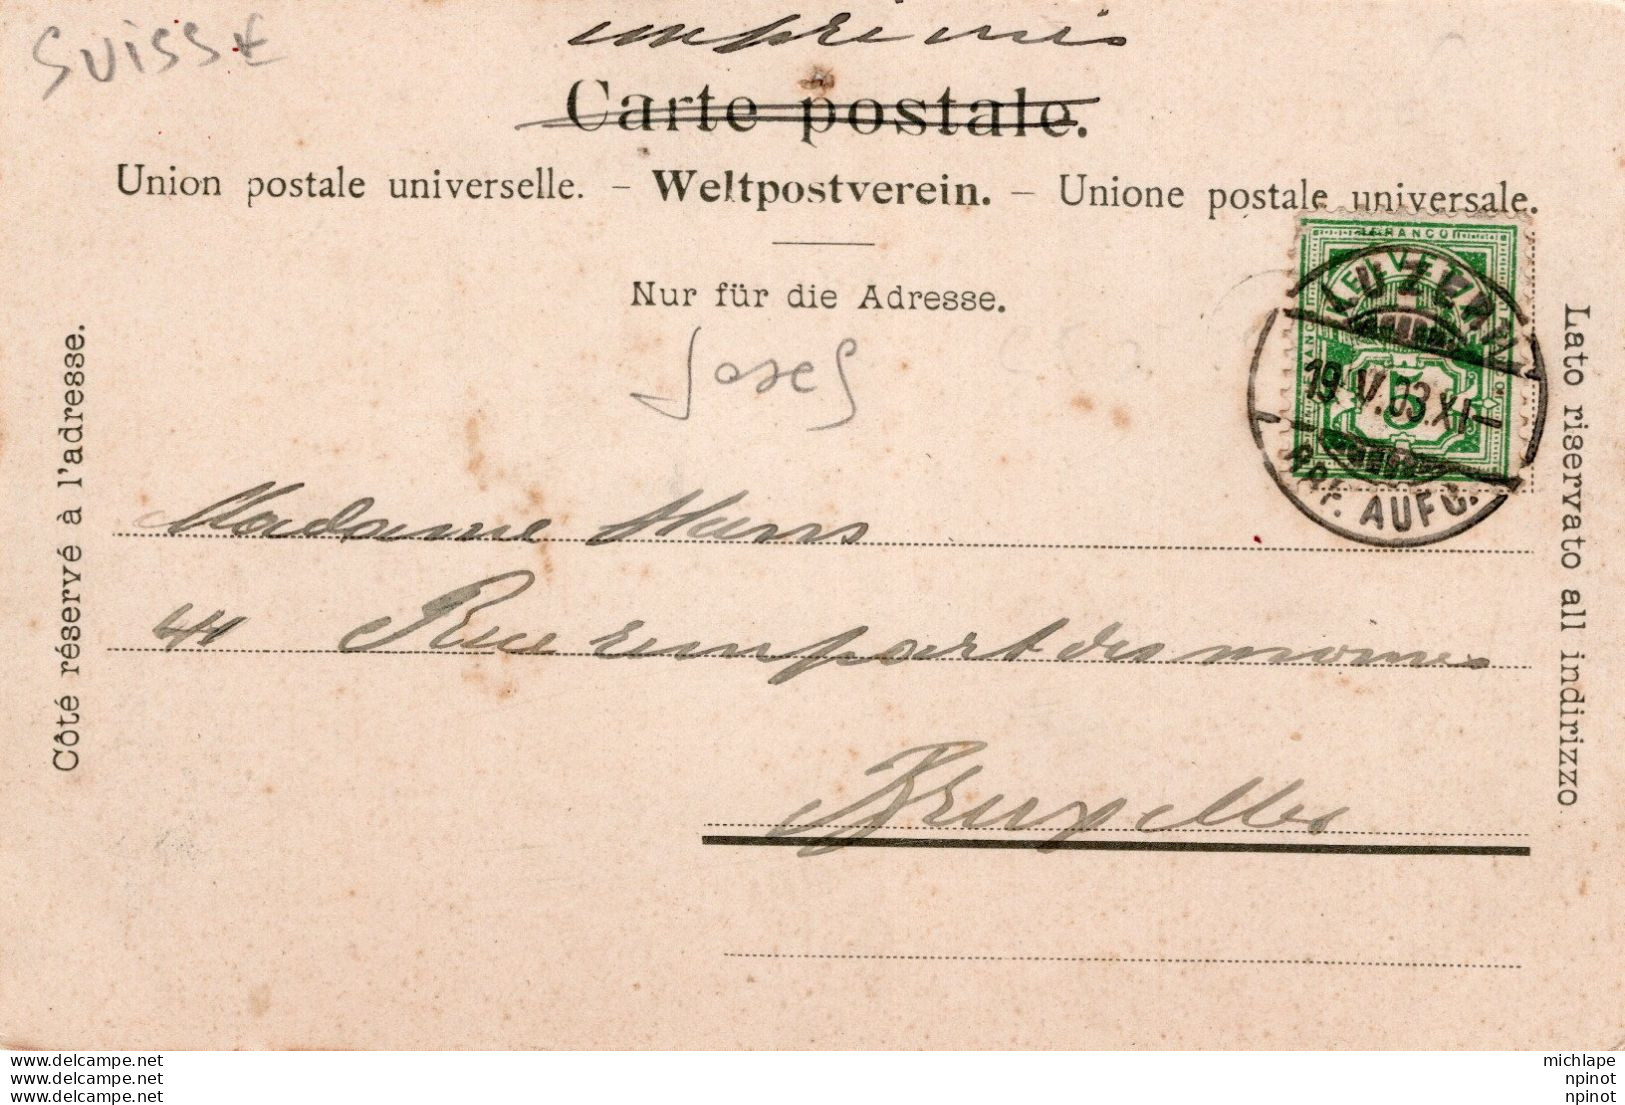 SUISSE
imprimés
Carte postale.
Union postale universelle. – Weltpostverein. – Unione postale universale.
Nur für die Adresse.
Josef
Côté réservé à l'adresse.
Lato riservato all indirizzo
FRANCO
HELVETIA
5
LUZERN
19.V.03.XI–
BRF. AUFG.
Madame Hans
44 Rue rempart des moines
Bruxelles
www.delcampe.net
www.delcampe.net
www.delcampe.net
michlape
npinot
npinot